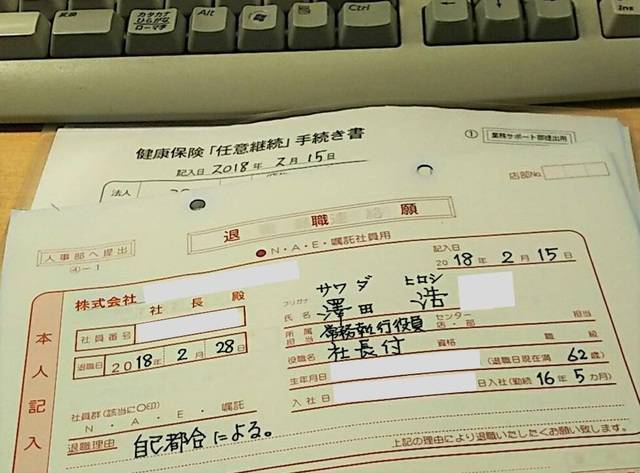 変換
カタカナ
ひらがな
ローマ字
Alt
Ctrl
Ins
健康保険「任意継続」手続き書
① 業務サポート部提出用
記入日 2018年 2月 15日
法人
店部No
退 職 願
人事部へ提出
④-1
●N・A・E・嘱託社員用
記入日
2018年 2月 15日
株式会社
社 長 殿
フリガナ サワダ ヒロシ
氏 名 澤田 浩
社員番号
所属 担当 常務執行役員 センター 店・部 担当
社長付
退職日 2018年 2月 28日
役職名 資格 職 級
生年月日 (退職日現在満 62歳)
入社日 日入社(勤続 16年 5カ月)
社員群(該当に○印)
N ・ A ・ E ・ 嘱託
退職理由 自己都合による。
上記の理由により退職いたしたくお願い致します。
本人記入